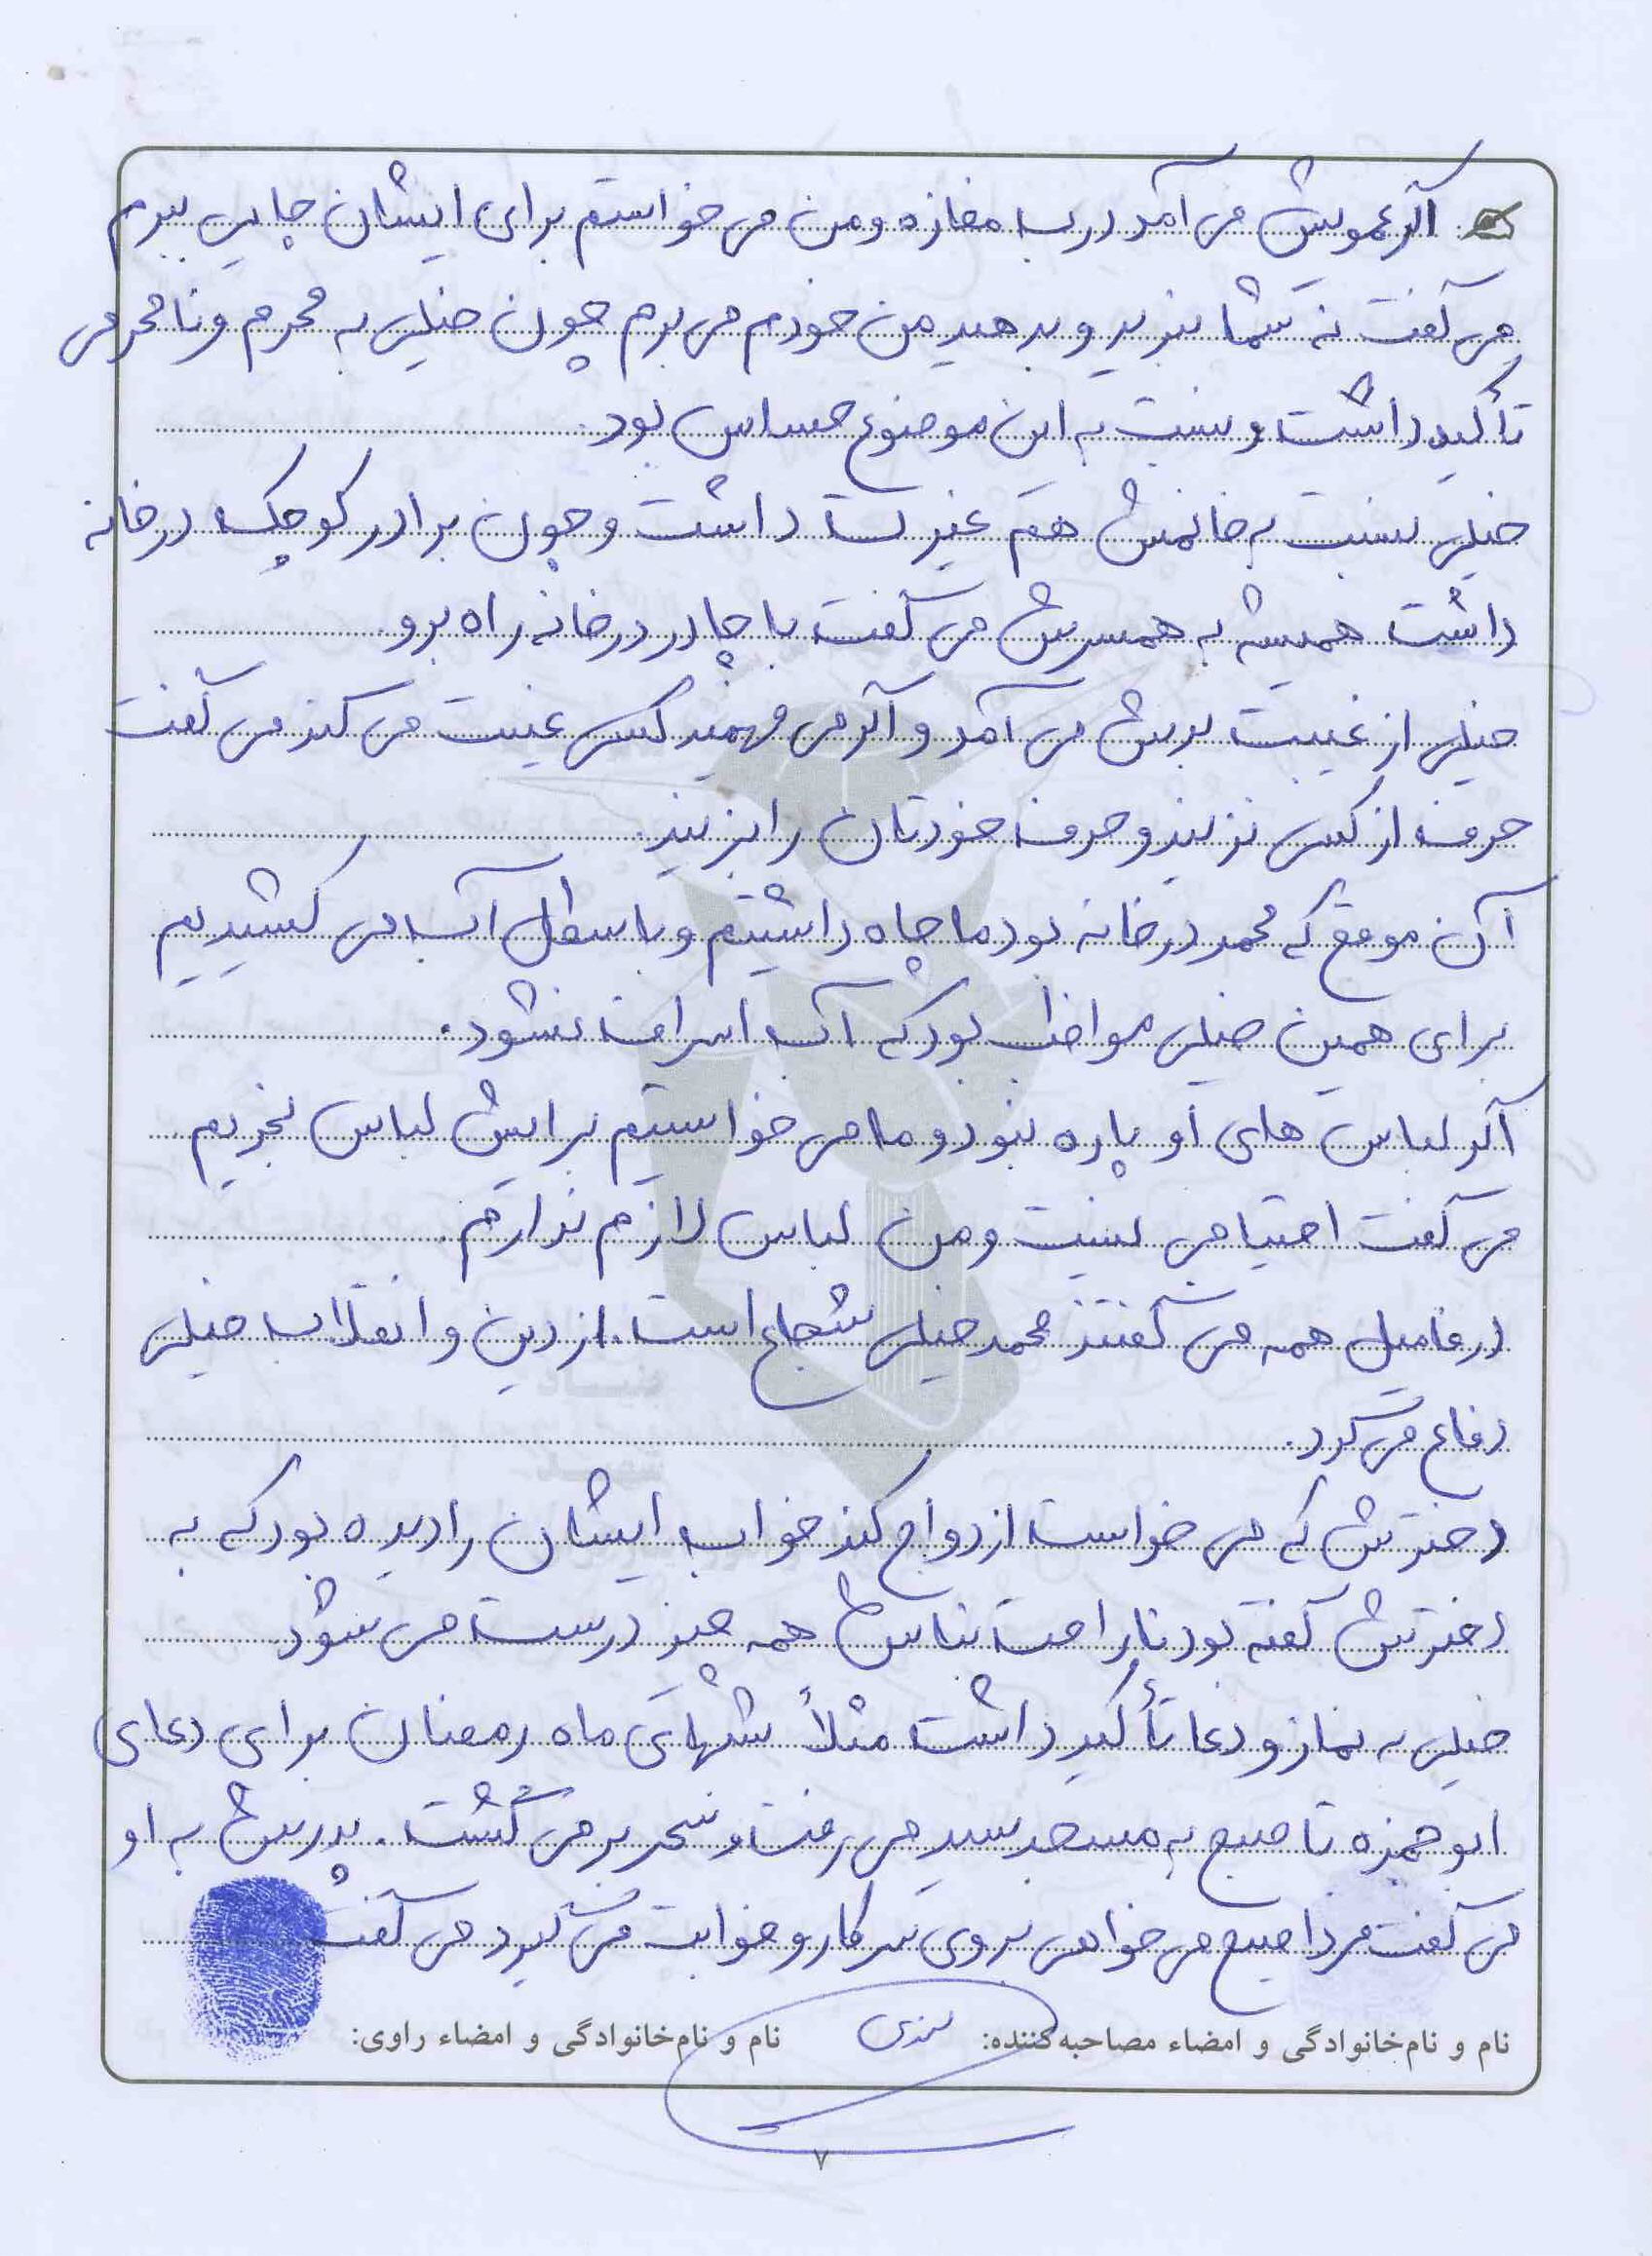 اگر عمویش می آمد درب مغازه و من می خواستم برای ایشان چایی ببرم
می گفت نه شما نبرید و بدهید من خودم می برم چون خیلی به محرم و نامحرمی
تأکید داشت و نسبت به این موضوع حساس بود.
خیلی نسبت به خانمش هم غیرت داشت و چون برادر کوچک در خانه
داشت همیشه به همسرش می گفت با چادر در خانه راه برو.
خیلی از غیبت بدش می آمد و اگر می فهمید کسی غیبت می کند می گفت
حرف از کسی نزنید و حرف خودتان را بزنید.
آن موقع که محمد در خانه بود ما چاه داشتیم و با سطل آب می کشیدیم
برای همین خیلی مواظب بود که آب اسراف نشود.
اگر لباس های او پاره نبود و ما می خواستیم برایش لباس بخریم
می گفت احتیاجی نیست و من لباس لازم ندارم.
در فامیل همه می گفتند محمد خیلی شجاع است. از دین و انقلاب خیلی
دفاع می کرد.
دخترش که می خواست ازدواج کند خواب ایشان را دیده بود که به
دخترش گفته بود ناراحت نباش همه چیز درست می شود
خیلی به نماز و دعا تأکید داشت مثلاً شبهای ماه رمضان برای دعای
ابوحمزه تا صبح به مسجد سید می رفت و سحر بر می گشت. پدرش به او
می گفت فردا صبح می خواهی بروی سر کار و خوابت می گیرد می گفت
نام و نام‌خانوادگی و امضاء مصاحبه‌کننده: نام و نام‌خانوادگی و امضاء راوی:
۷